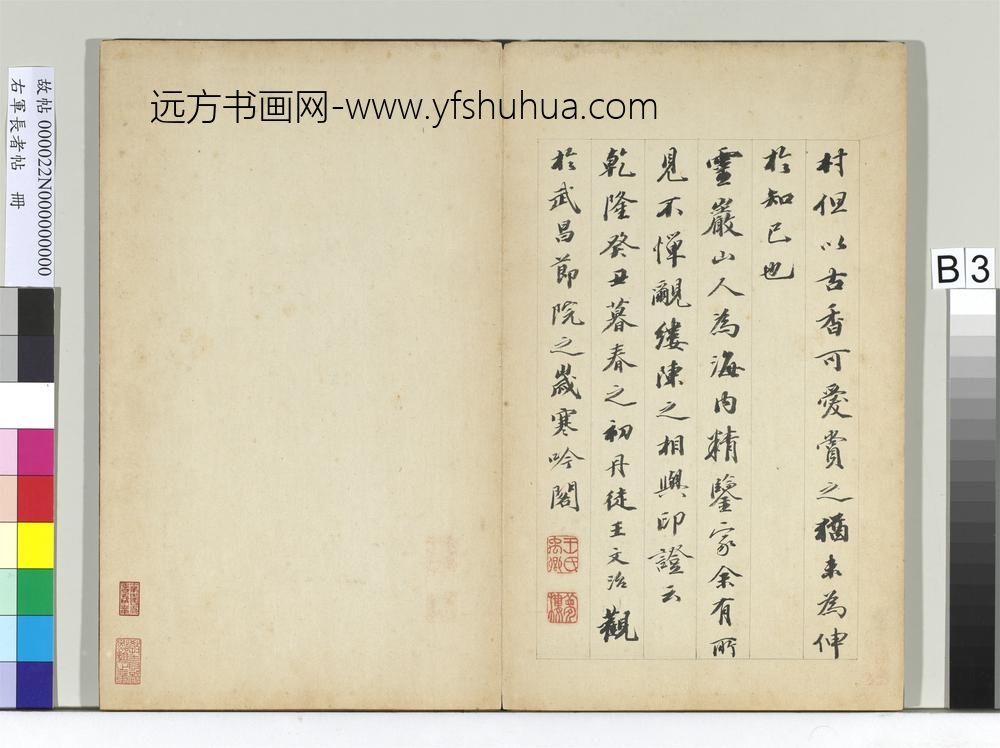 远方书画网-www.yfshuhua.com
故帖 000022N000000000
右軍長者帖 冊
B 3
村但以古香可愛賞之猶未為伸
於知己也
靈巖山人為海内精鑒家余有所
見不憚覼縷陳之相與印證云
乾隆癸丑暮春之初丹徒王文治觀
於武昌節院之歲寒吟閣
王氏禹卿
夢樓